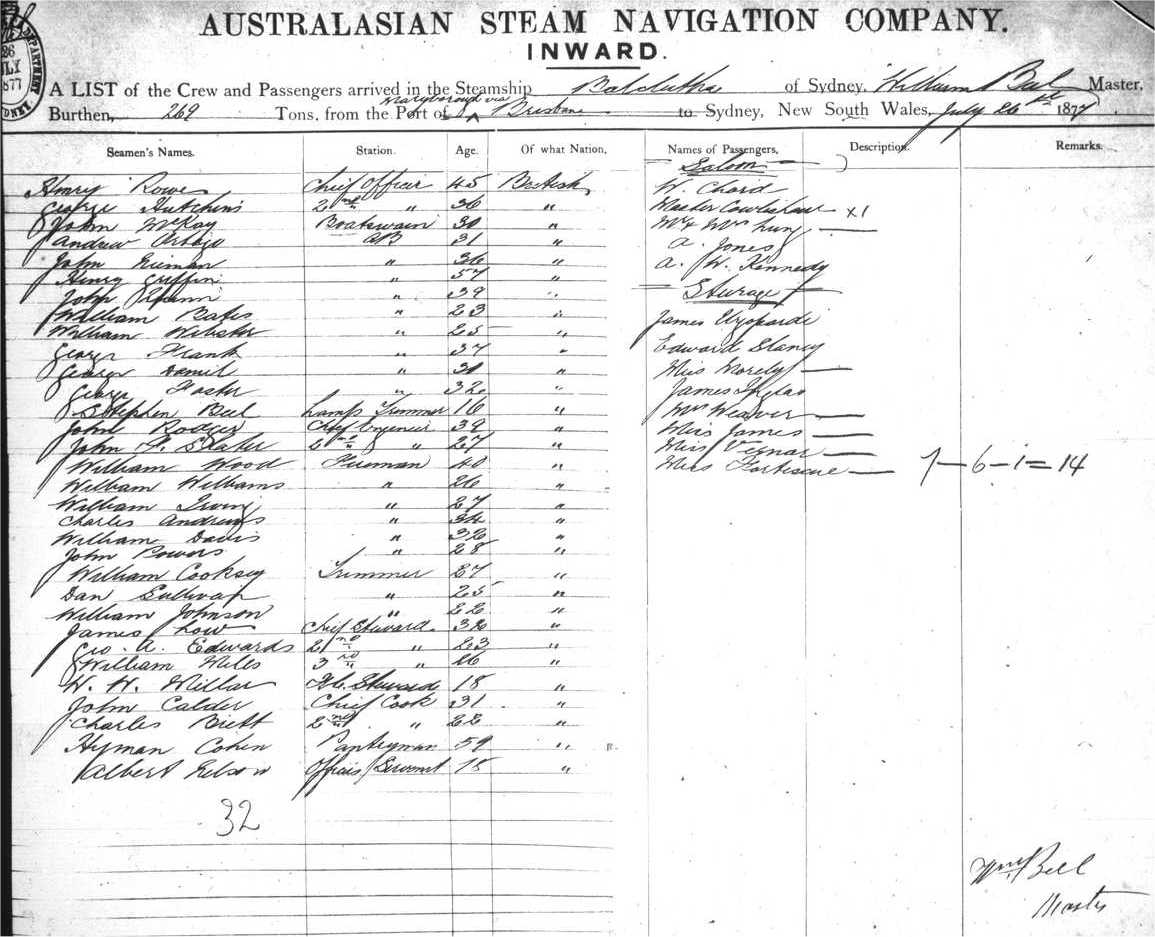 26
JULY
1877
AUSTRALASIAN STEAM NAVIGATION COMPANY.
INWARD.
A LIST of the Crew and Passengers arrived in the Steamship Balclutha of Sydney, William Bell Master,
Burthen, 269 Tons, from the Port of Maryborough via Brisbane to Sydney, New South Wales, July 26th 1877
Seamen's Names. Station. Age. Of what Nation, Names of Passengers, Description. Remarks.
Saloon
Henry Rowe Chief Officer 45 British W. Chard
George Hutchins 2nd " 36 " Master x1
John McKay Boatswain 30 " Mr & Mrs
Andrew AB 31 " A. Jones
John " 36 " A. W. Kennedy
Henry Griffin " 57 " Steerage
John " 39 "
William Bates " 23 " James
William Webster " 25 "
George Frank " 37 " Edward Slancy
George Daniel " "
George Foster " 32 " Miss Morely
Stephen Bell Lamp Trimmer 16 " James
John Rodger Chief Engineer 39 " Mrs Weaver
John F. Slater 2nd " 27 " Miss James
William Wood Fireman 40 " Miss
William Williams " 26 " Miss Fortescue 7-6-1=14
William Irving " 27 "
Charles Andrews " 34 "
William Davis " 32 "
John Powers " 28 "
William Cooksey Trimmer 27 "
Dan Sullivan " 25 "
William Johnson " 22 "
James Low Chief Steward 32 "
Geo. A. Edwards 2nd " 23 "
William Mills 3rd " 26 "
W. W. Millar F.C. Steward 18 "
John Calder Chief Cook 31 "
Charles Brett 2nd " 22 "
Hyman Cohen Pantryman 59 "
Albert Officers Servant 18 "
32
Wm Bell
Master